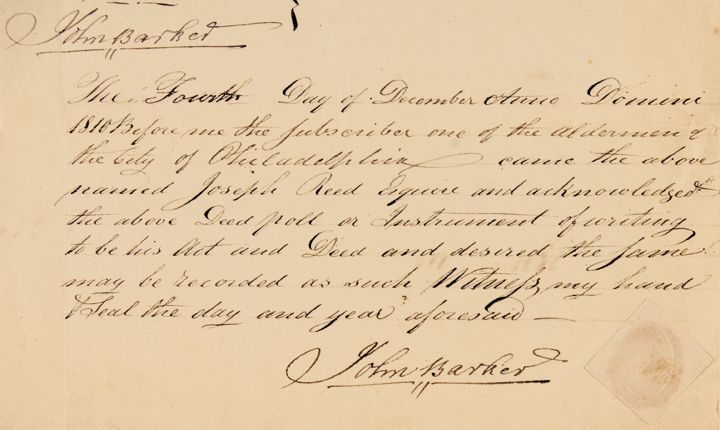 John Barker
The Fourth Day of December Anno Domini
1810 Before me the Subscriber one of the aldermen of
the City of Philadelphia came the above
named Joseph Reed Esquire and acknowledged
the above Deed poll or Instrument of writing
to be his Act and Deed and desired the same
may be recorded as such Witness my hand
& Seal the day and year aforesaid —
John Barker